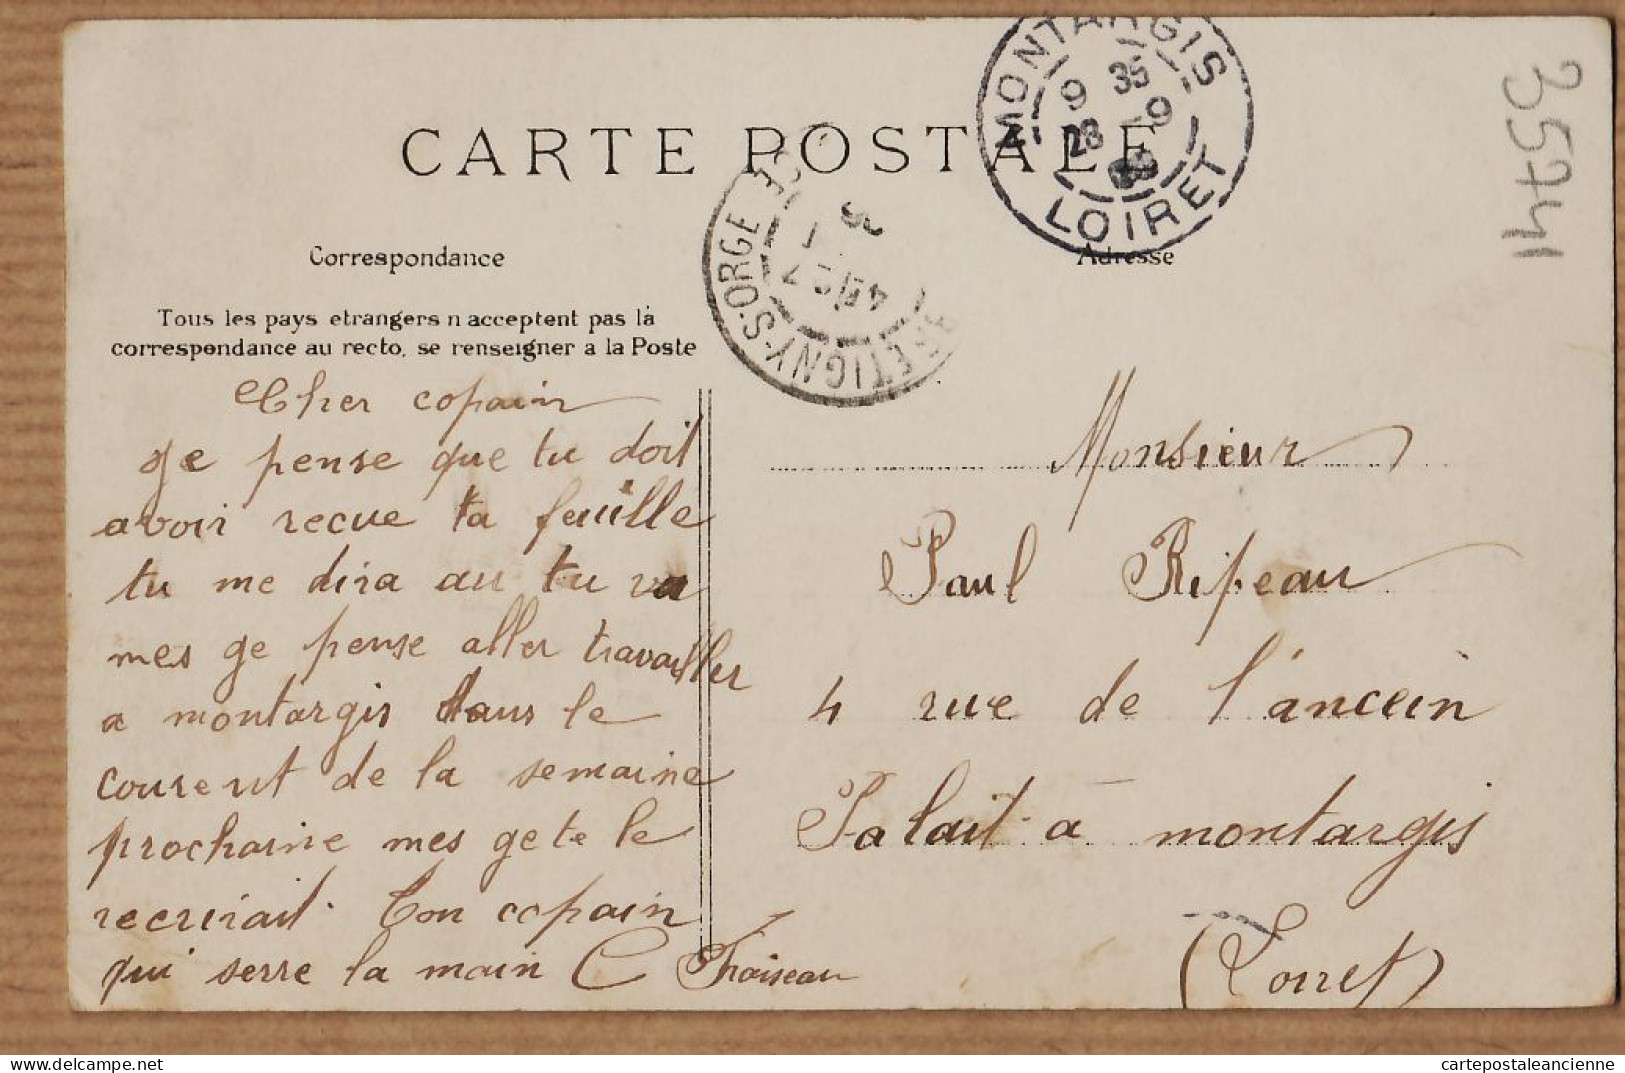 CARTE POSTALE
MONTARGIS
9 35
28 -9
LOIRET
35741
BRETIGNY-S-ORGE
Correspondance
Adresse
Tous les pays etrangers n acceptent pas la
correspondance au recto, se renseigner a la Poste
Cher copain
Je pense que tu doit
avoir recue ta feuille
tu me dira au tu va
mes ge pense aller travailler
a montargis dans le
courent de la semaine
prochaine mes ge te le
recrirait. Ton copain
qui serre la main C Froiseau
Monsieur
Paul Ripeau
4 rue de l'ancein
Palait à montargis
(Loiret)
cartepostaleancienne
delcampe.net